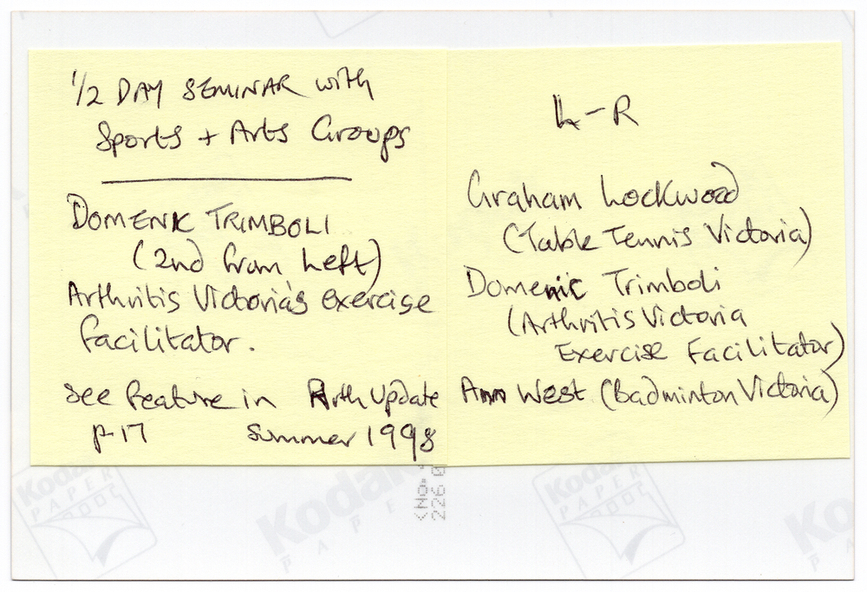 1/2 DAY SEMINAR with
Sports + Arts Groups
DOMENIC TRIMBOLI
(2nd from Left)
Arthritis Victoria's exercise
facilitator.
See feature in ArthUpdate
p-17 Summer 1998
L-R
Graham Lockwood
(Table Tennis Victoria)
Domenic Trimboli
(Arthritis Victoria
Exercise Facilitator)
Ann West (Badminton Victoria)
Kodak
PAPER
Kodak
PAPER
Kodak
PAPER
<No.
226 0